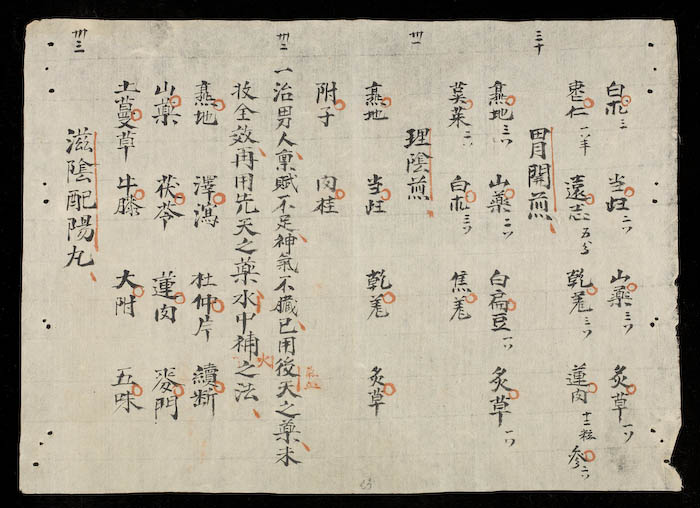 三十
白朮三 当归二 山藥三 炙草一
枣仁一 遠志五分 乾姜三 蓮肉十二粒 参二
胃関煎
熟地三 山藥二 白扁豆一 炙草一
萸茱二 白朮三 焦姜
卅一
理陰煎
熟地 当归 乾姜 炙草
附子 肉桂
卅二
一治男人稟賦不足神氣不臓已用後天之藥未
收全效再用先天之藥水中補之法
火
熟地 澤瀉 杜仲片 續断
山藥 茯苓 蓮肉 麥門
土蔓草 牛膝 大附 五味
卅三
滋陰配陽丸